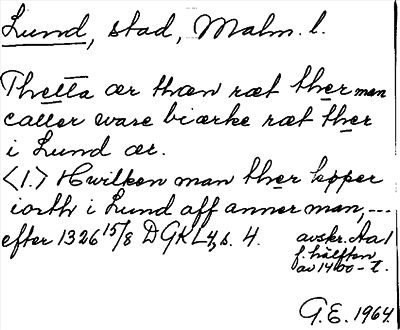 Lund, stad, Malm. l.
Thetta ær thæn ræt ther man
caller ware biærke ræt ther
i Lund ær.
<1.> Hwilken man ther køper
iorth i Lund aff anner man, ---
efter 1326 15/8 DGKL 4, s. 4.
avskr. Aa 1
f. hälften
av 1400-t.
G.E. 1964.